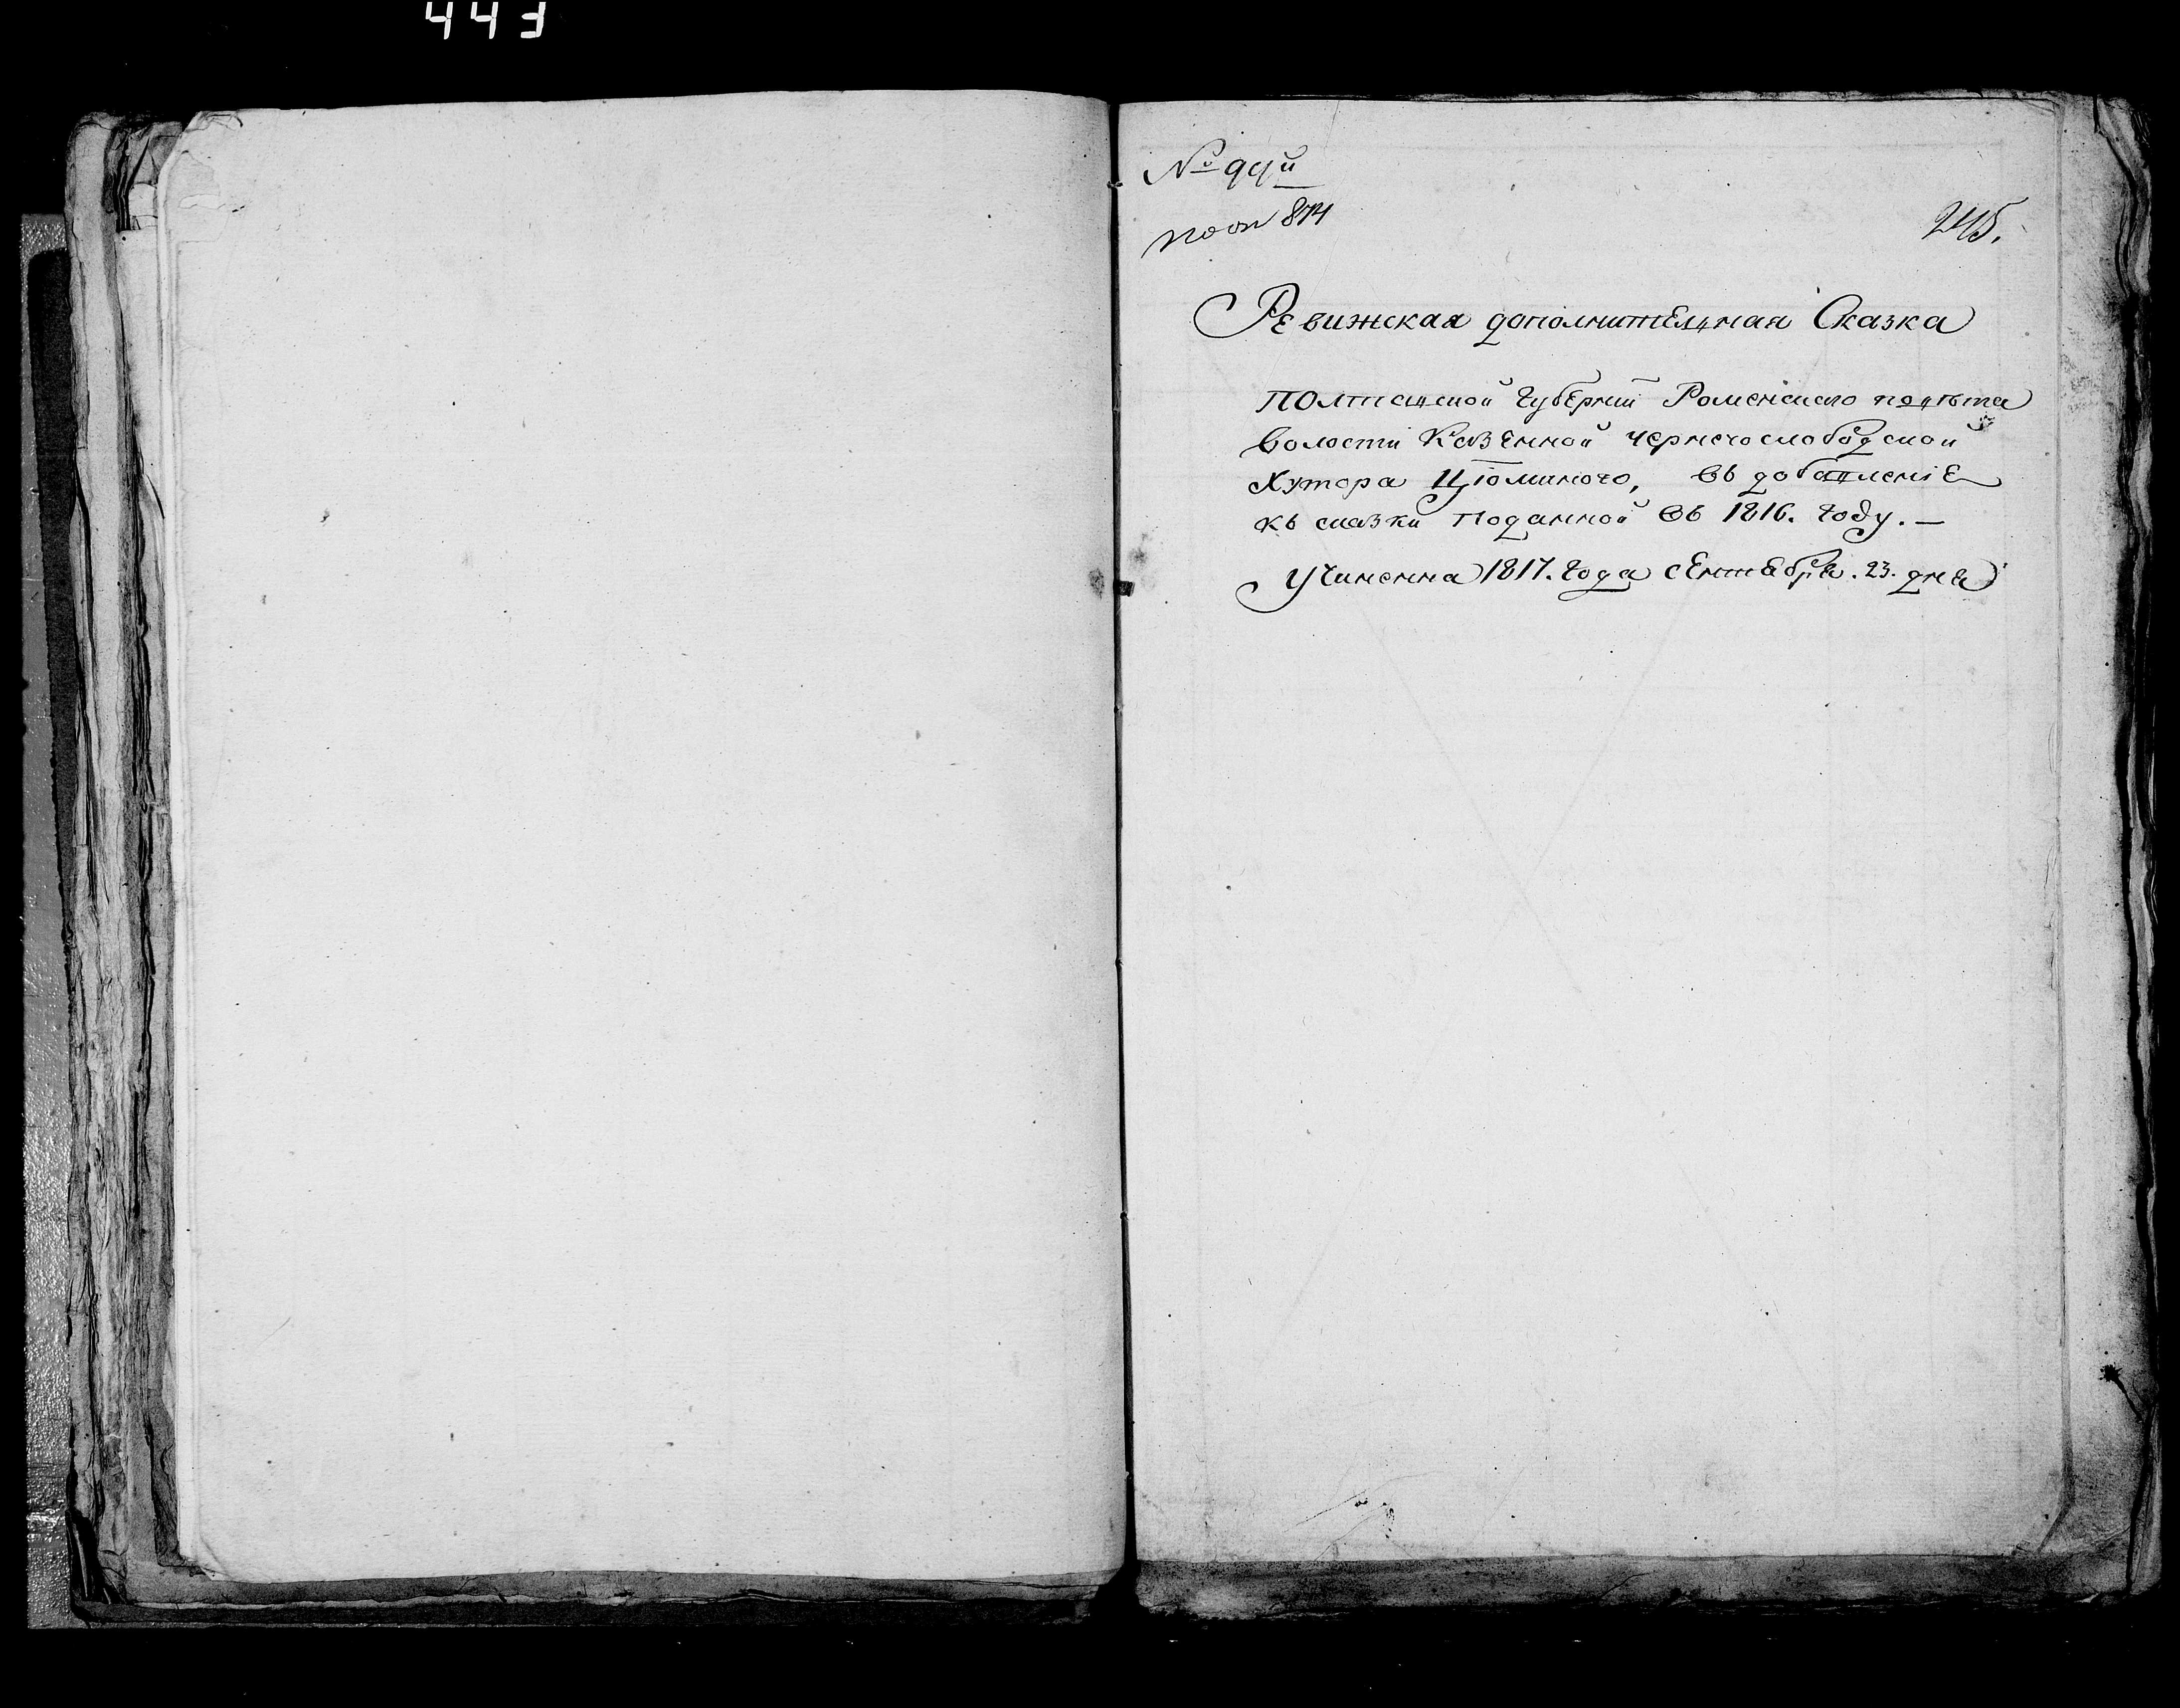 443
№ 99й
по оп 874
245.
Ревижская дополнительная Сказка
Полтавской Губернии Роменского повѣта
волости Казенной чернечослободской
Хутора Цюминого, въ добавленіе
къ сказки поданной въ 1816. Году. —
Учиненна 1817. Года сентебря. 23. дня